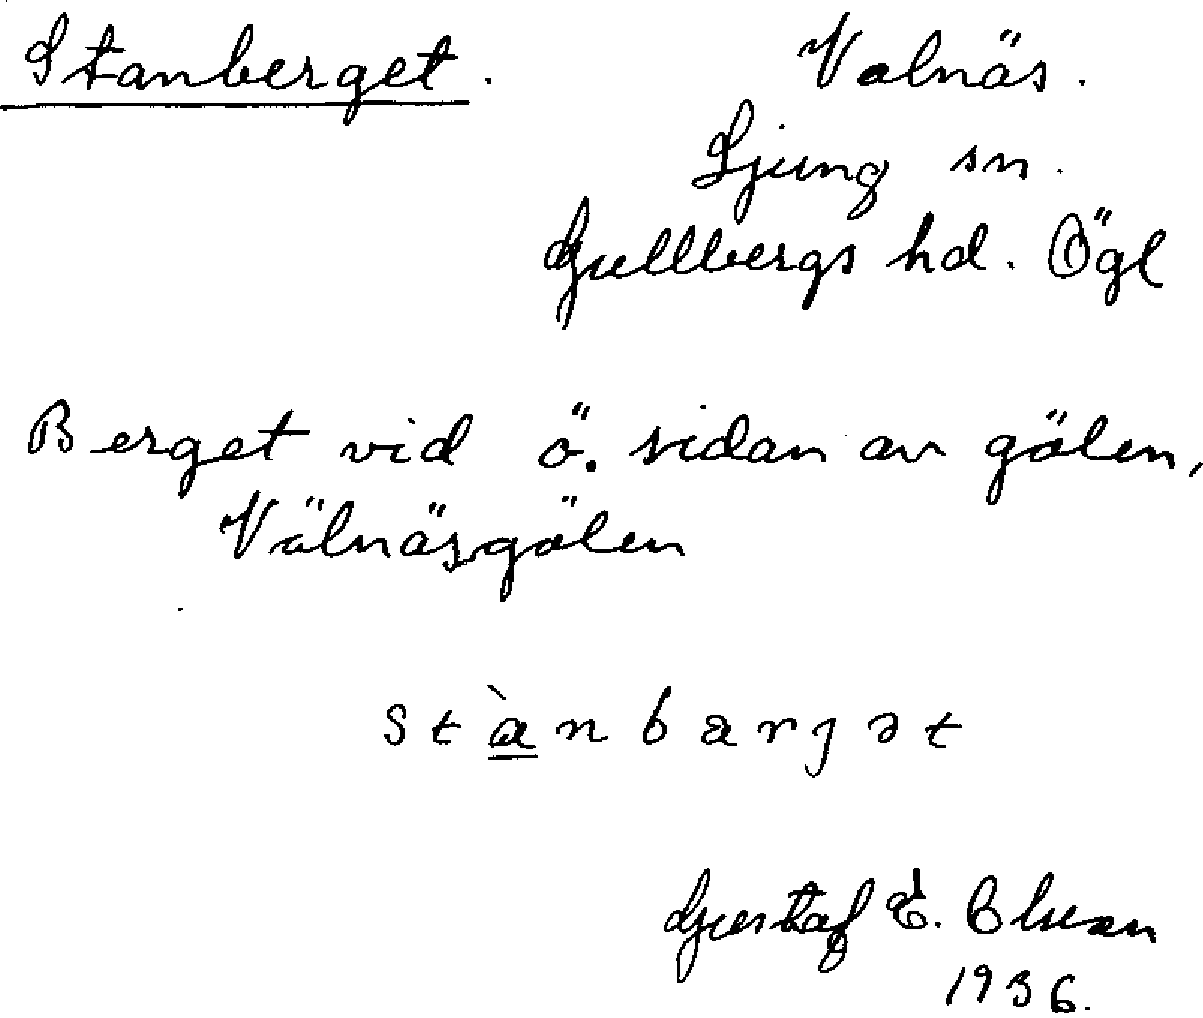 Stanberget. Valnäs.
Ljung sn.
Gullbergs hd. Ögl
Berget vid ö. sidan av gölen,
Välnäsgölen
stànbarjət
Gustaf E.
1936.